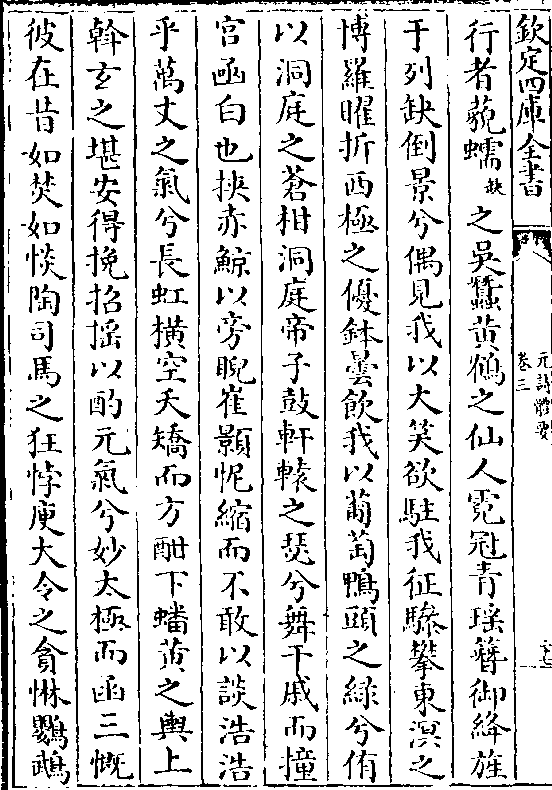 欽定四庫全書
元詩體要
卷三
行者藐蠕缺之吳蠶黄鶴之仙人霓冠青瑶簪御絳旌
于列缺倒景兮偶見我以大笑欲駐我征驂攀東溟之
博羅曜折西極之優鉢曇飲我以葡萄鴨頭之緑兮侑
以洞庭之蒼柑洞庭帝子鼓軒轅之瑟兮舞干戚而撞
宫函白也挾赤鯨以旁睨崔顥怩縮而不敢以談浩浩
乎萬丈之氣兮長虹横空夭矯而方酣下蟠黄之輿上
斡玄之堪安得挽招摇以酌元氣兮妙太極而函三慨
彼在昔如焚如惔陶司馬之狂悖庾大令之貪惏鸚鵡